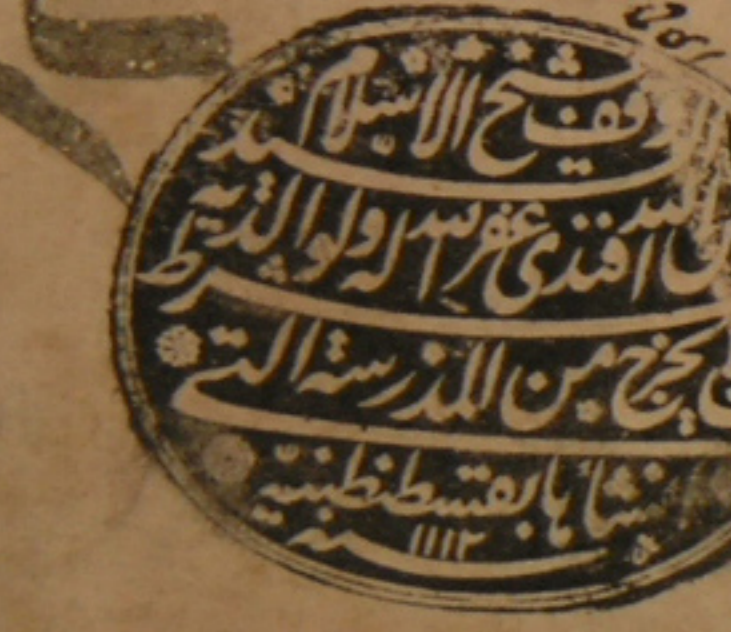 وقف شيخ الاسلام السيد
الله افندى غفر الله له ولوالديه بشرط
يخرج من المدرسة التي
انشأها بقسطنطينية
سنه ١١١٢